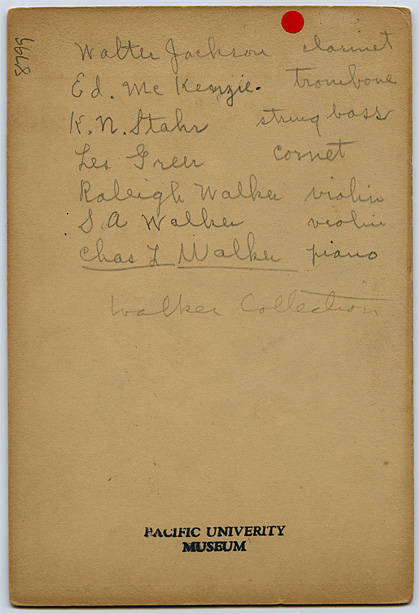 8799
Walter Jackson clarinet
Ed. Mc Kenzie. trombone
K. N. Stahr string bass
Les Green cornet
Raleigh Walker violin
S A Walker violin
Chas L Walker piano
Walker Collection
PACIFIC UNIVERITY
MUSEUM